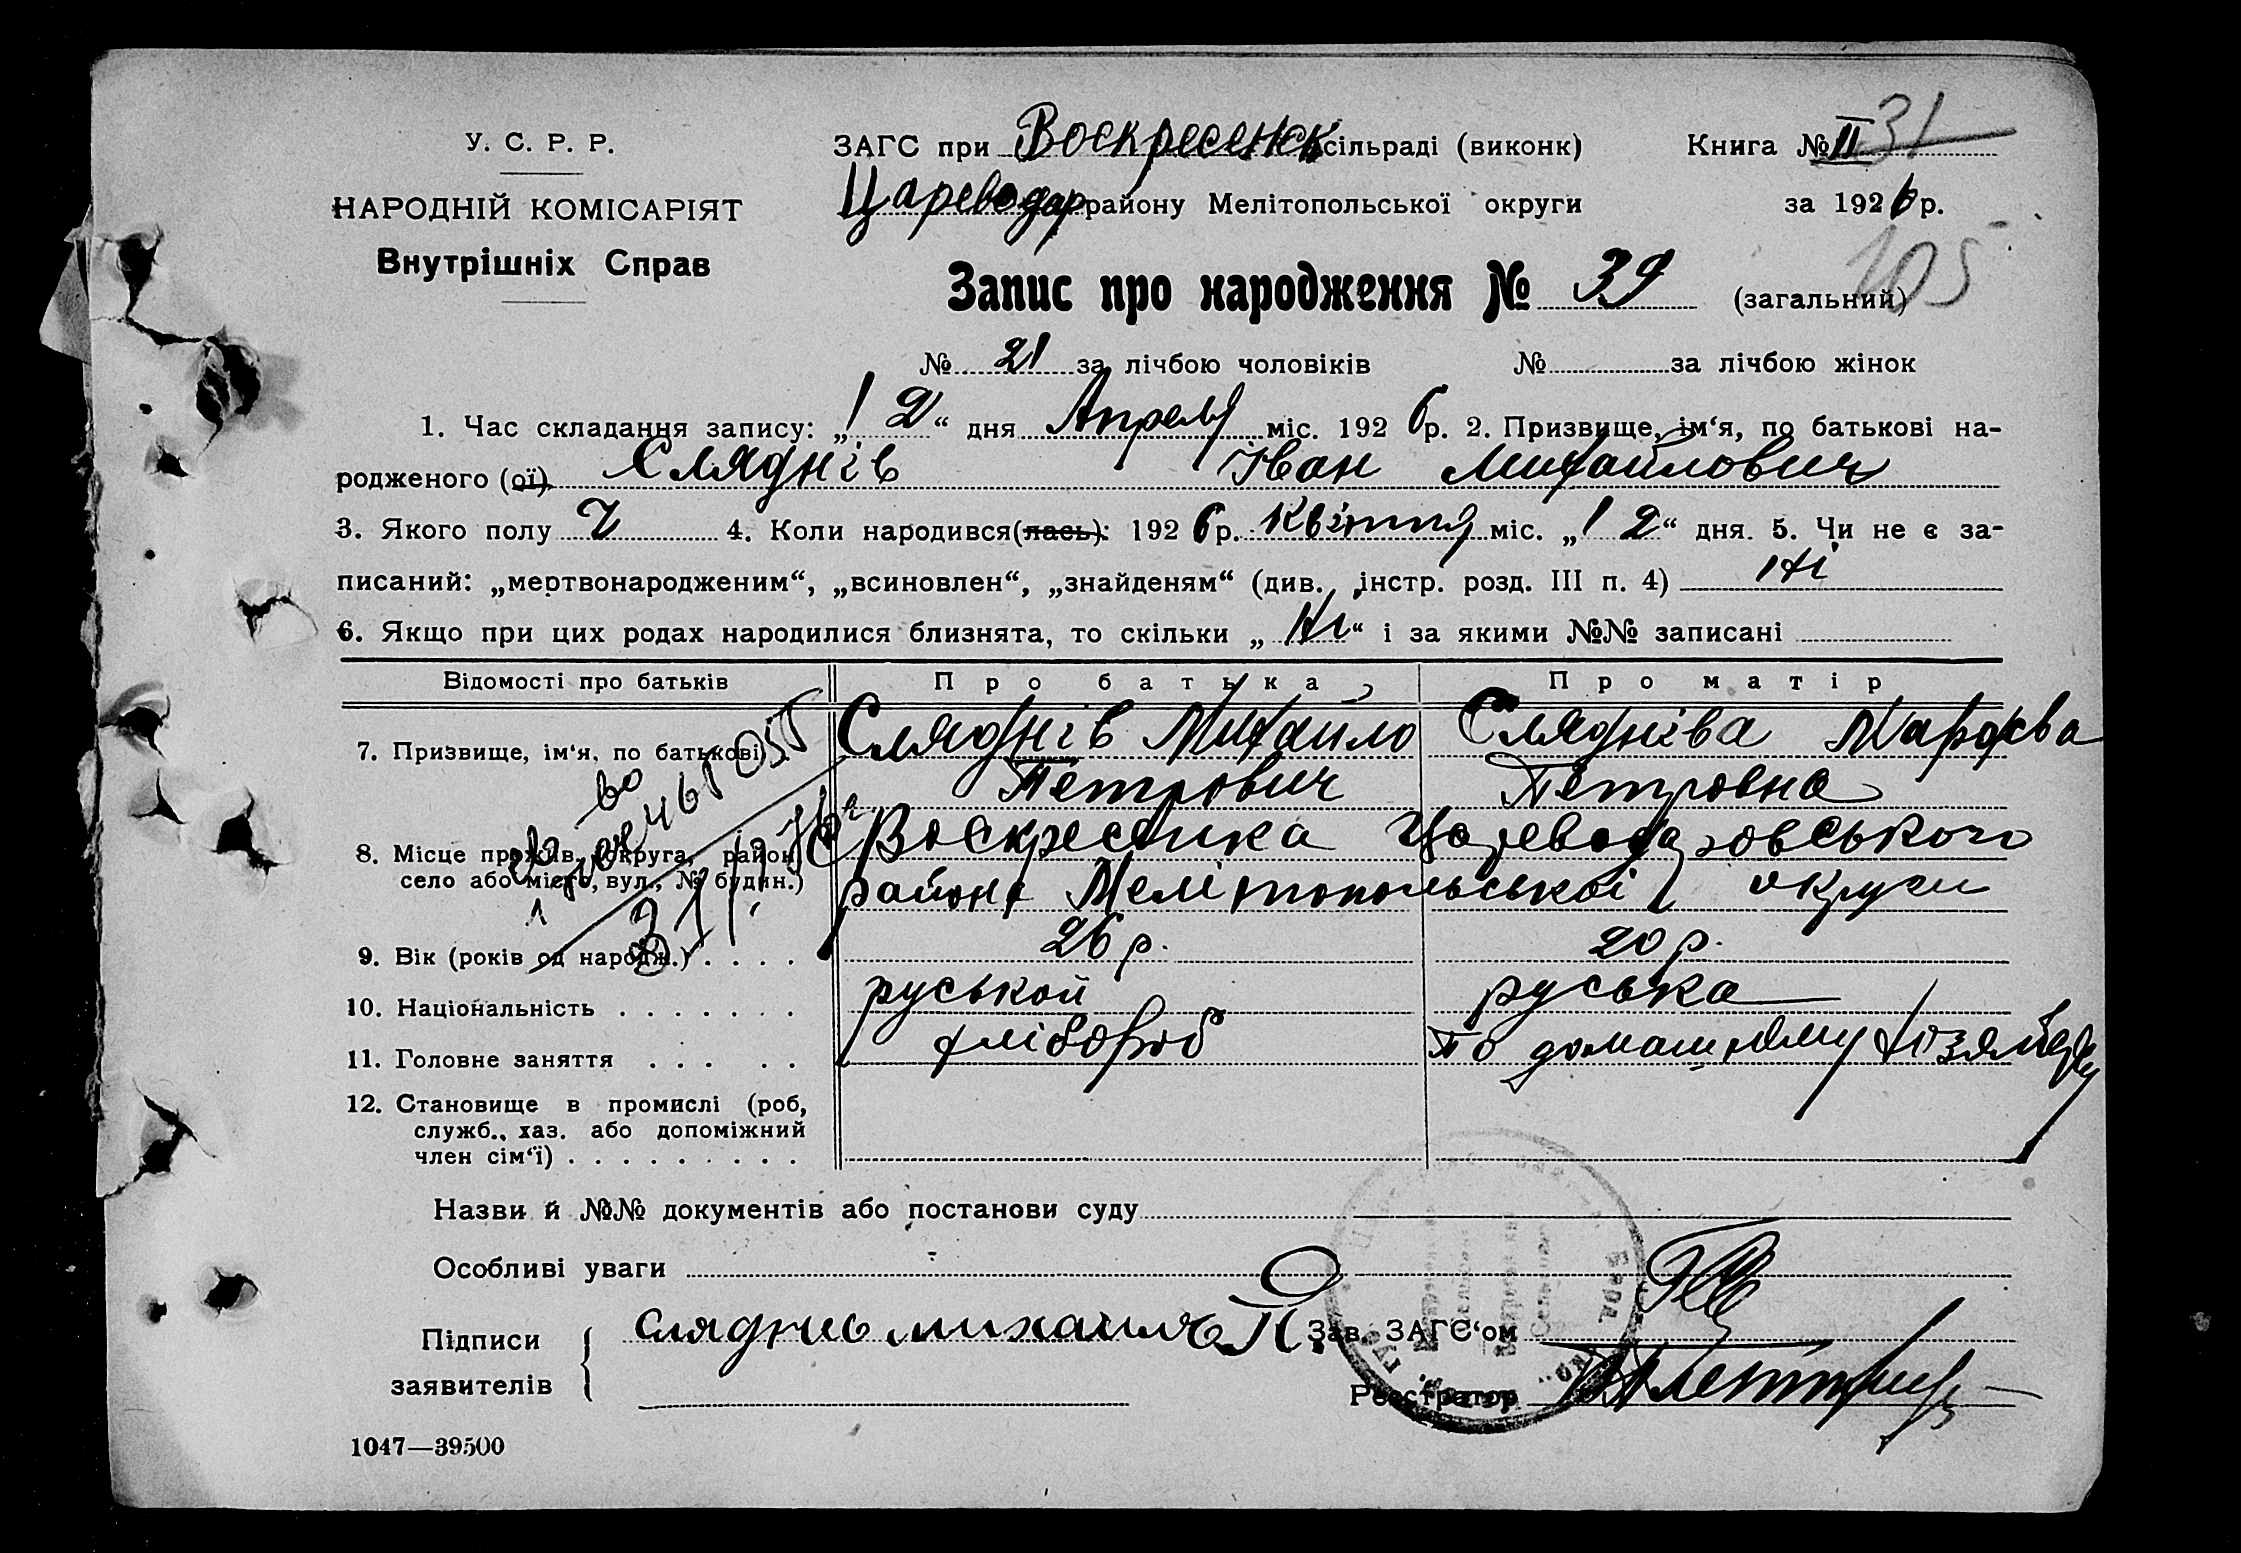 У. С. Р. Р.
НАРОДНІЙ КОМІСАРІЯТ
Внутрішніх Справ
ЗАГС при Воскресенск сільраді (виконк)
Книга № II 31
Цареводар району Мелітопольської округи
за 1926 р.
105
Запис про народження № 39 (загальний)
№ 21 за лічбою чоловіків № за лічбою жінок
1. Час складання запису: „12“ дня Апреля міс. 1926 р. 2. Призвище, ім‘я, по батькові на-
родженого (ої) Сляднів Іван Михайлович
3. Якого полу Ч 4. Коли народився(лась): 1926 р. Квітня міс. „12“ дня. 5. Чи не є за-
писаний: „мертвонародженим“, „всиновлен“, „знайденям“ (див. інстр. розд. III п. 4) Ні
6. Якщо при цих родах народилися близнята, то скільки „Ні“ і за якими №№ записані
Відомості про батьків Про батька Про матір
7. Призвище, ім‘я, по батькові) Сляднів Михайло Сляднева Марфа
Петрович Петровна
8. Місце прожив. (округа, район, с Воскресенка Цареводаровського
село або місто, вул., № будин.) района Мелітопольської округи
9. Вік (років од народж.) . . . . 26 р. 20 р.
10. Національність . . . . . . . руський руська
11. Головне заняття . . . . . хлібороб По домашньому хозяйству
12. Становище в промислі (роб,
служб., хаз. або допоміжний
член сім‘ї) . . . . . . . . .
Назви й №№ документів або постанови суду
Особливі уваги
Підписи
заявителів
сляднев михаил П.
Зав. ЗАГС‘ом
Реєстратор
1047—39500